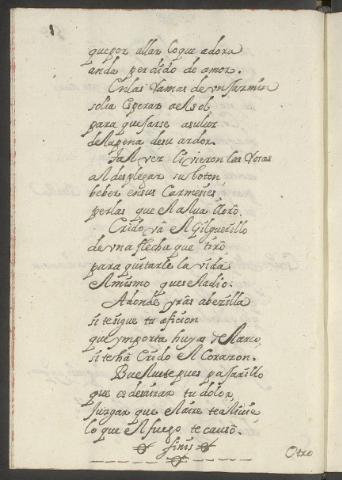 que por allar lo que adora
anda perdido de amor.
En las ramas de un jasmin
solia esperar al sol
para quejarse a su luz
de la pena de su ardor.
Tal vez le vieron las rosas
al desplegar su boton
beber en sus carmenes
perlas que el alva lloro.
Erido ya el Gilguerillo
de una flecha que tiro
para quitarle la vida
el mismo que se la dio.
Adonde yras abezilla
si te sigue tu aficion
que ymporta huyas de Marte,
si te ha Erido el Corazon.
Buelvete pues pajarillo
que es desvarar tu dolor,
juzgar que el aire te alivia
lo que el fuego te causo.
finis
Otro